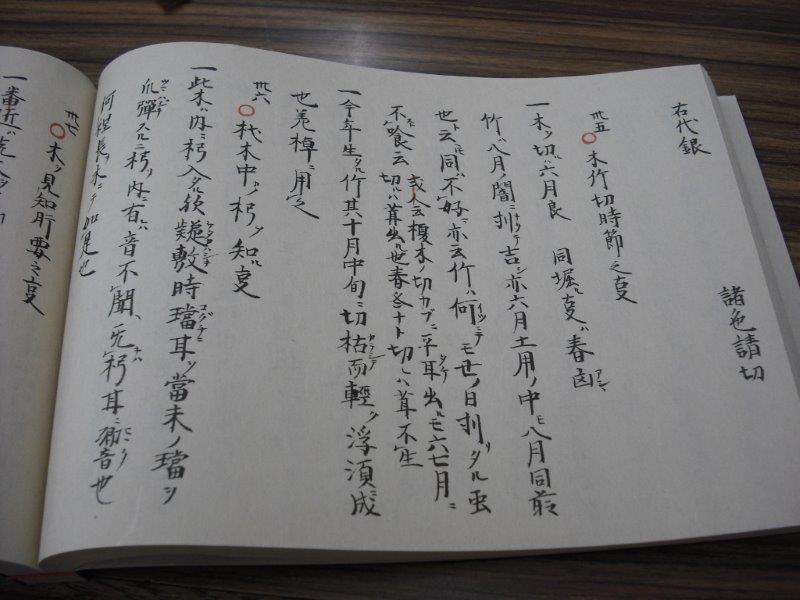 右代銀
諸色請切
卅五 ○ 木竹切時節之事
一木ノ切ハ六月良 同堀ル事ハ春凶
竹ハ八月ノ闇ニ刈テ吉シ亦六月土用ノ中モ八月同前
也ト云トモ同ハ不好ニ亦云竹ハ何モ廿ノ日刈リタル虫
不喰云
或人云榎木ノ切カブニ平耳出ルモ六七月ニ
切ハ茸出ル也春冬ナド切レハ茸不生
一今年生タル竹其十月中旬ニ切枯而軽ク浮須成
也差棹ニ用之
卅六 ○ 杙木中ノ朽ヲ知ル事
一此木ノ内ニ朽入タル欤 敷時璫耳ヲ當末ノ璫ヲ
爪弾スルニ朽ノ内ニ有ハ音不聞、无朽耳ニ音也
何程長ノ木ニテモ如是也
卅七 ○ 木ノ見知肝要之事